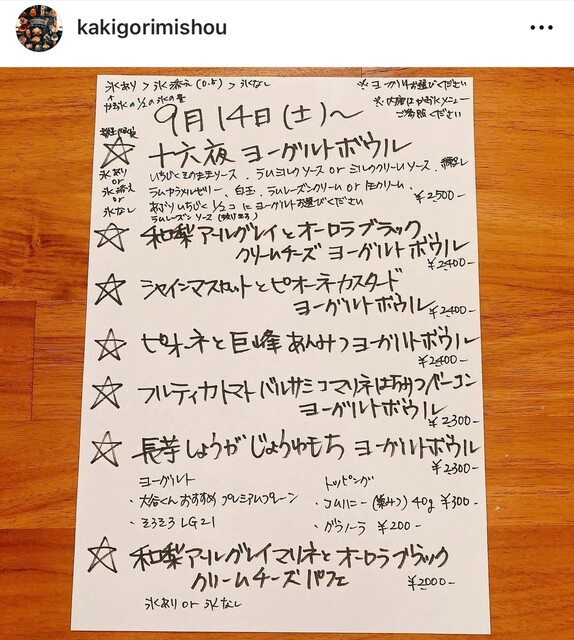 kakigorimishou
氷あり > 氷添え(0.5) > 氷なし
※ヨーグルトお選びください
かき氷の1/2の氷の量
※内容はかき氷メニュー
ご参照ください
9月14日(土)~
十六夜 ヨーグルトボウル
氷あり
or
氷添え
or
氷なし
いちじくそのままソース、ラムミルクソース or ミルクリームソース、練乳
ラムキャラメルゼリー、白玉、ラムレーズンクリーム or 生クリーム、
あぶりいちじく1/2コ にヨーグルトお選びください
¥2500-
ラムレーズンソース
和梨アールグレイとオーロラブラック
クリームチーズ ヨーグルトボウル
¥2400-
シャインマスカットとピオーネカスタード
ヨーグルトボウル
¥2400-
ピオーネと巨峰あんみつヨーグルトボウル
¥2400-
フルティカトマトバルサミコマリネはちみつベーコン
ヨーグルトボウル
¥2300-
長芋しょうがじょうゆもち ヨーグルトボウル
¥2300-
ヨーグルト
トッピング
・大谷くんおすすめ プレミアムプレーン
・コムハニー(巣みつ)40g ¥300-
・そろそろLG21
・グラノーラ ¥200-
和梨アールグレイマリネとオーロラブラック
クリームチーズパフェ
¥2000-
氷あり or 氷なし